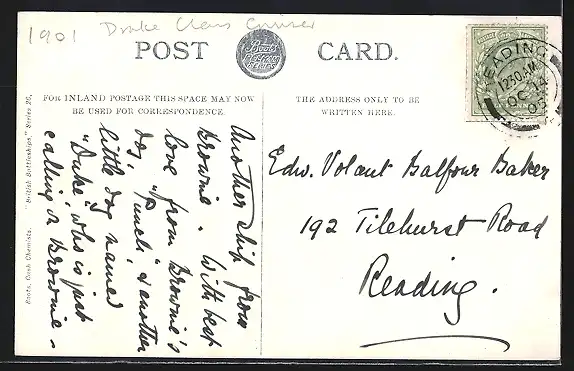 1901 Drake Class Cruiser
POST CARD.
Boots
FOR INLAND POSTAGE THIS SPACE MAY NOW
BE USED FOR CORRESPONDENCE.
THE ADDRESS ONLY TO BE
WRITTEN HERE.
Another ship from
Brownie. With best
love from Brownie's
dog, "Punch", & another
little dog named
"Duke", who is just
calling on Brownie.
Boots, Cash Chemists. "British Battleships," Series 20.
Edw. Volant Balfour Baker
192 Tilehurst Road
Reading.
READING
12.30 AM
OC 14
05